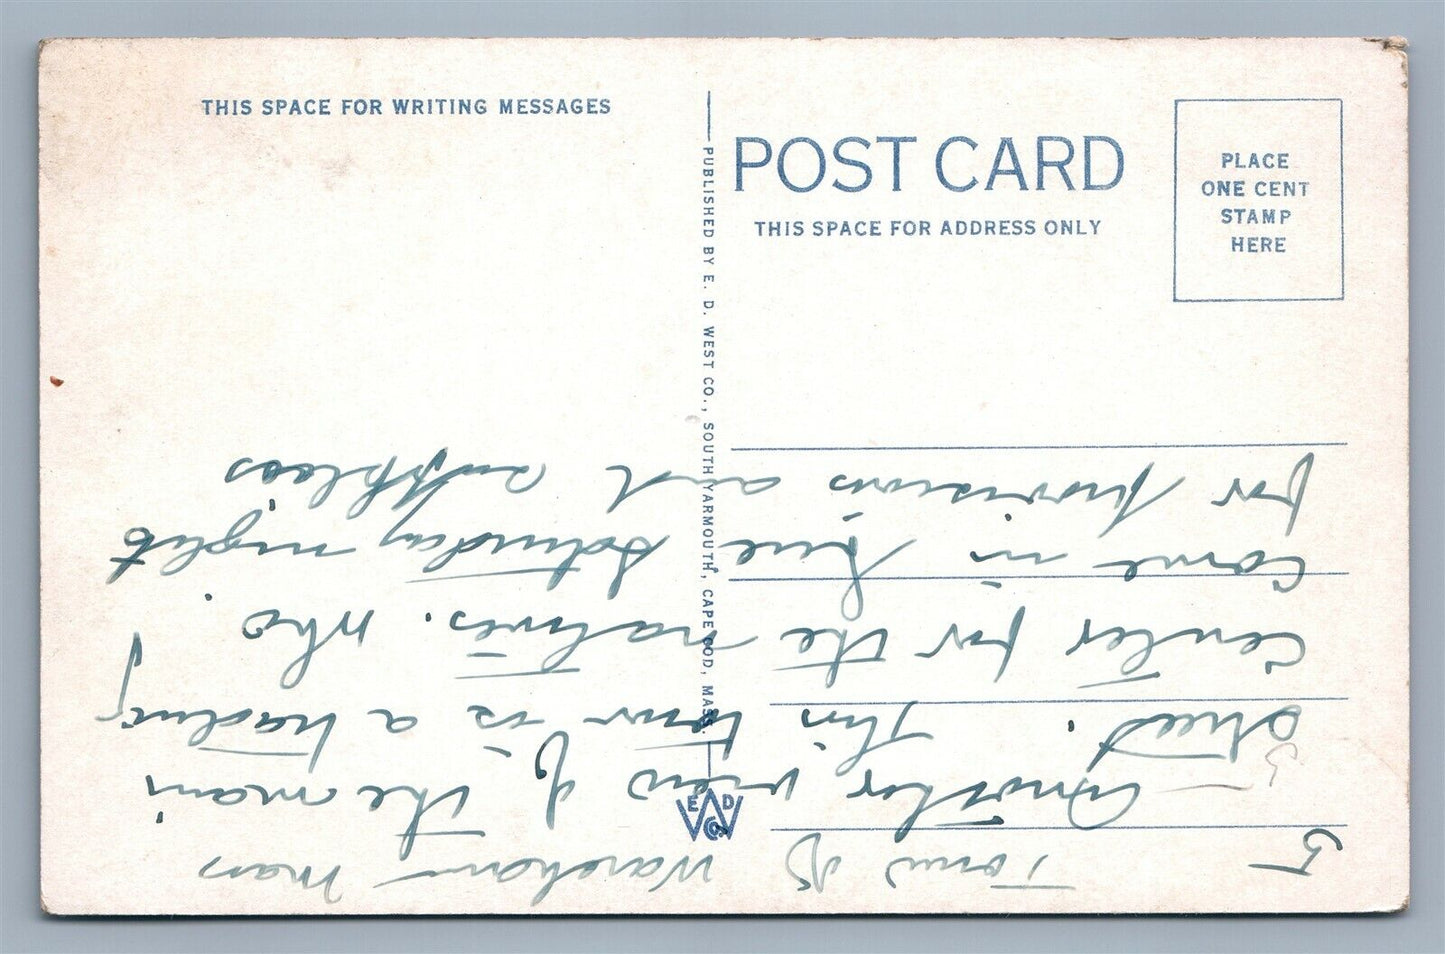 THIS SPACE FOR WRITING MESSAGES
POST CARD
THIS SPACE FOR ADDRESS ONLY
PLACE
ONE CENT
STAMP
HERE
PUBLISHED BY E. D. WEST CO., SOUTH YARMOUTH, CAPE COD, MASS.
E D
W
CO.
5 — Town of Wareham Mass
— Another view of the main
street. This town is a trading
center for the natives. who
come in here Saturday night
for provisions and supplies